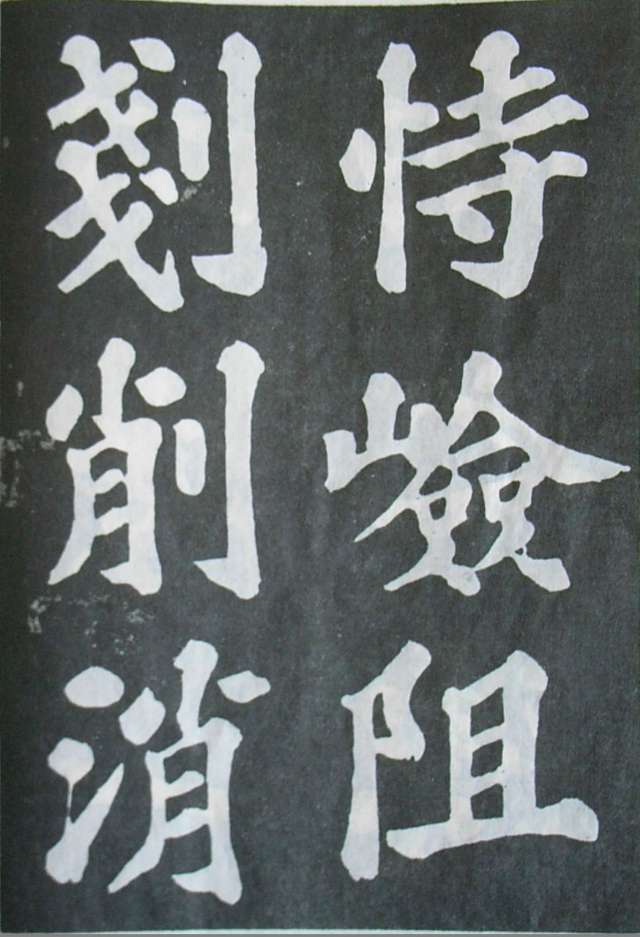 恃嶮阻
剗削消